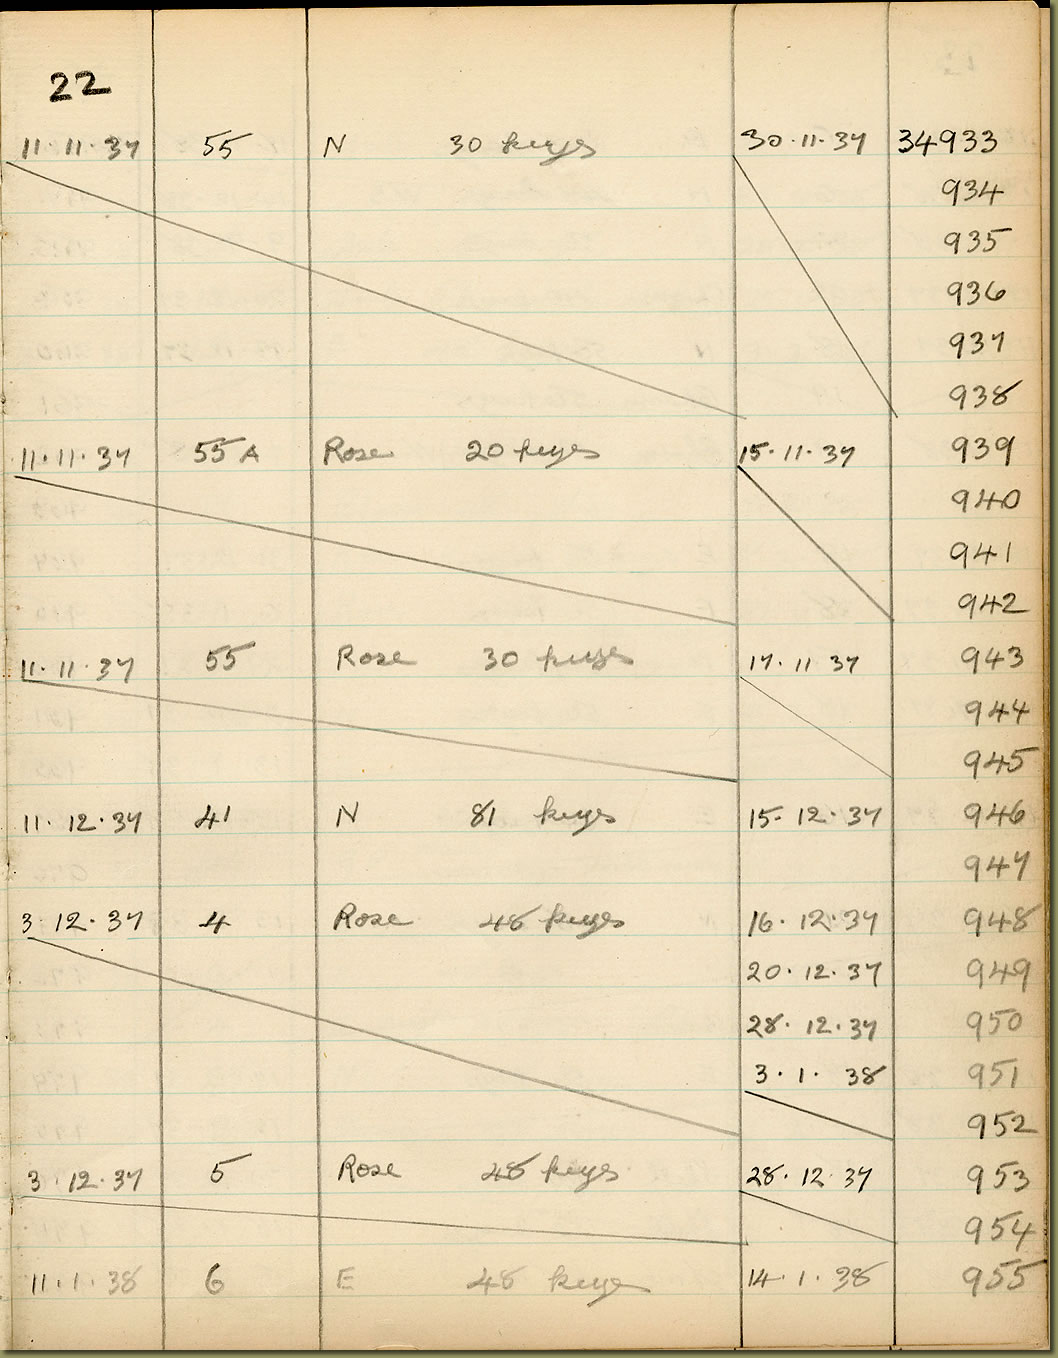 22
11·11·37 55 N 30 keys 30·11·37 34933
934
935
936
937
938
11·11·37 55A Rose 20 keys 15·11·37 939
940
941
942
11·11·37 55 Rose 30 keys 17·11 37 943
944
945
11·12·37 41 N 81 keys 15·12·37 946
947
3·12·37 4 Rose 48 keys 16·12·37 948
20·12·37 949
28·12·37 950
3·1·38 951
952
3·12·37 5 Rose 48 keys 28·12·37 953
954
11·1·38 6 E 48 keys 14·1·38 955